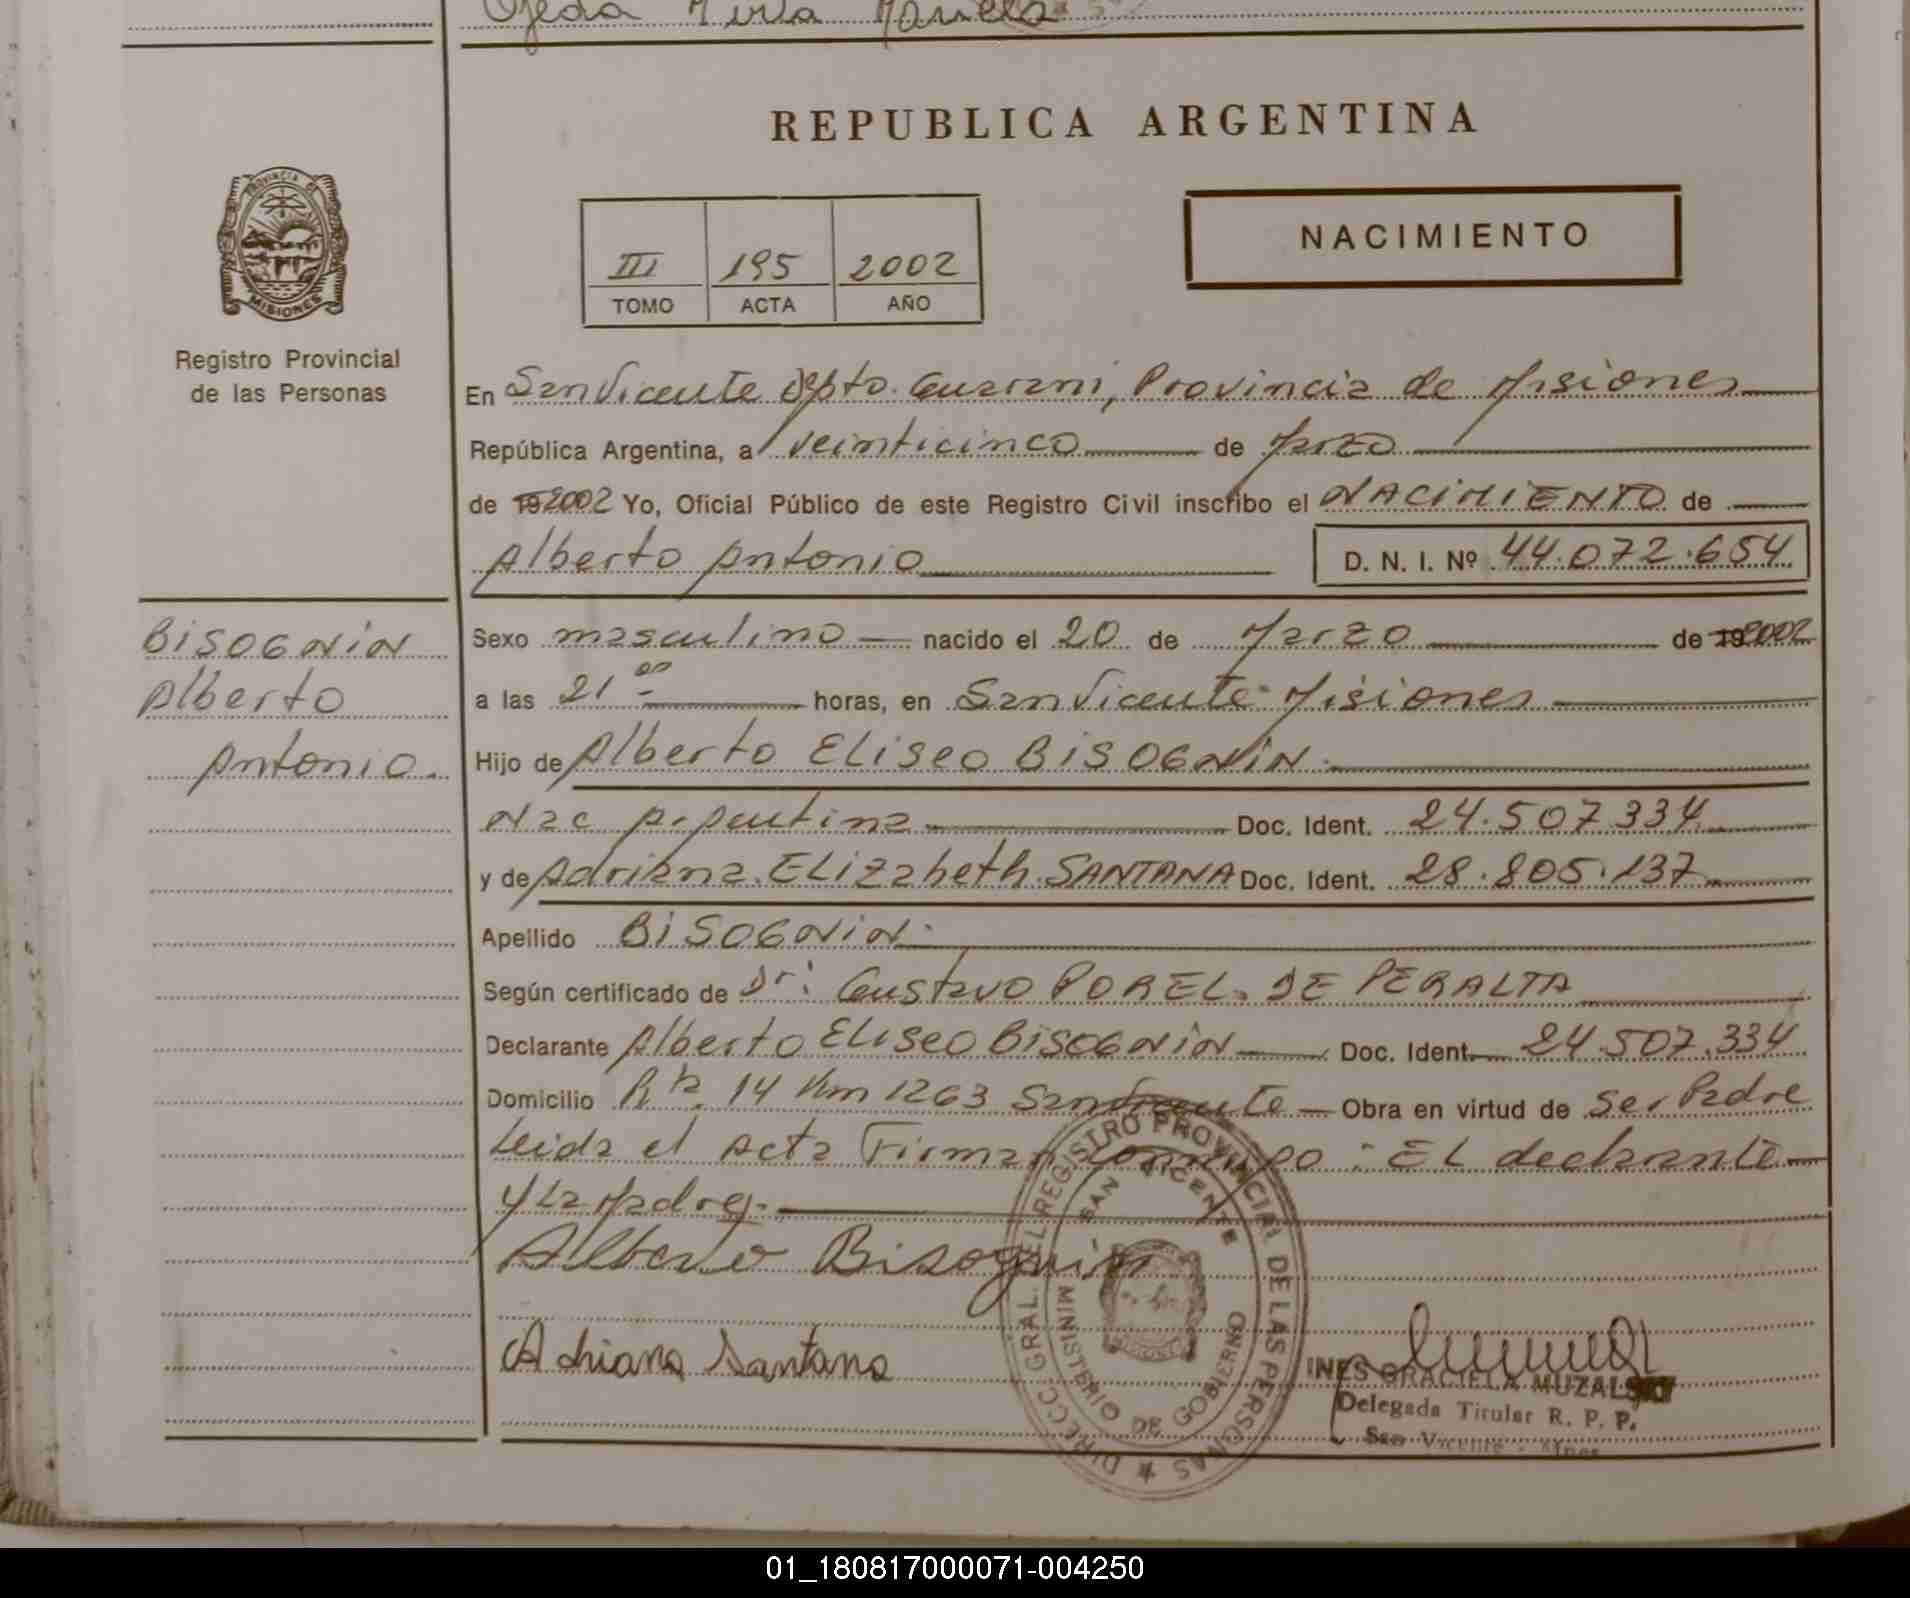 Ojeda Mirta Mariela
REPUBLICA ARGENTINA
PROVINCIA DE
MISIONES
Registro Provincial
de las Personas
III 195 2002
TOMO ACTA AÑO
NACIMIENTO
En San Vicente Dpto. Guarani, Provincia de Misiones
República Argentina, a veinticinco de Marzo
de 19 2002 Yo, Oficial Público de este Registro Civil inscribo el NACIMIENTO de
Alberto Antonio D. N. I. Nº 44.072.654
BISOGNIN
Alberto
Antonio.
Sexo masculino nacido el 20 de Marzo de 19 2002
a las 21 00 horas, en San Vicente Misiones
Hijo de Alberto Eliseo BISOGNIN.
Nac Argentina Doc. Ident. 24.507.334
y de Adriana Elizabeth SANTANA Doc. Ident. 28.805.137
Apellido BISOGNIN.
Según certificado de Dr: Gustavo POREL DE PERALTA
Declarante Alberto Eliseo BISOGNIN Doc. Ident. 24.507.334
Domicilio Rta. 14 Km 1263 San Vicente Obra en virtud de ser Padre
Leida el Acta Firman conmigo: El declarante
y la Madre.
Alberto Bisognin
Adriana Santana
DIRECC. GRAL. DEL REGISTRO PROVINCIAL DE LAS PERSONAS
SAN VICENTE
MINISTERIO DE GOBIERNO
INES GRACIELA MUZALSKY
Delegada Titular R. P. P.
San Vicente - Mnes
01_180817000071-004250